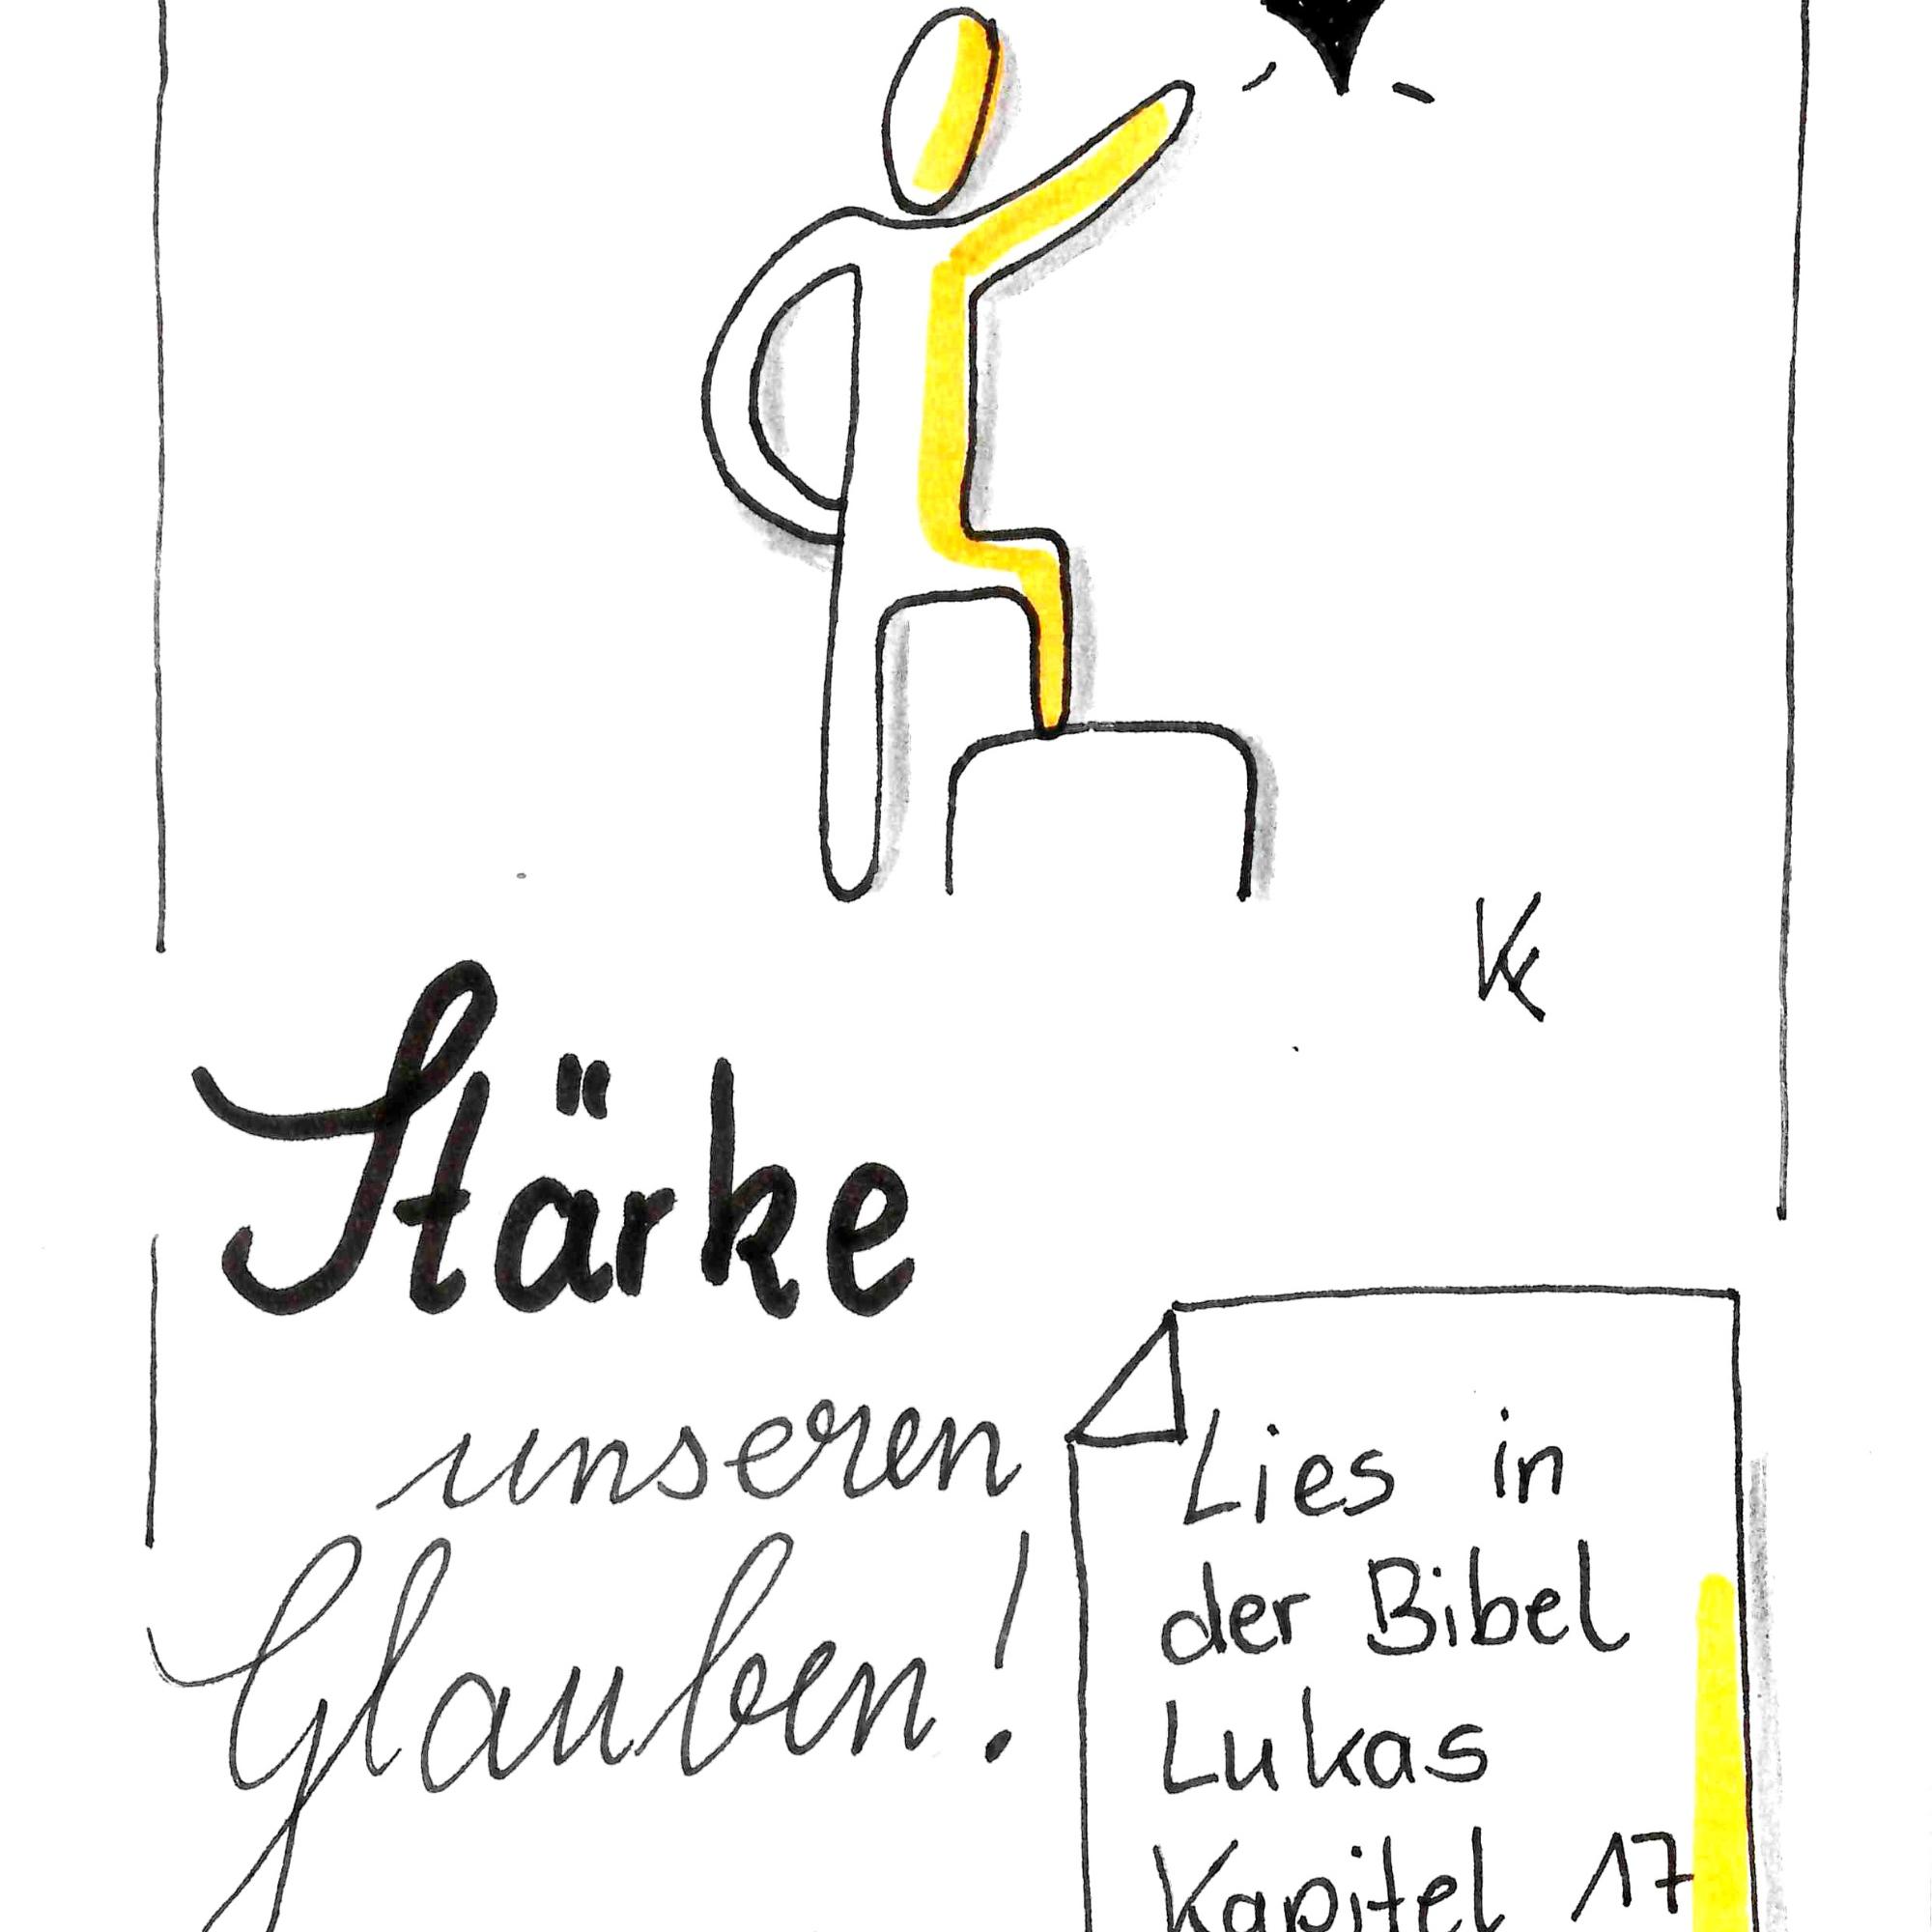 Stärke
unseren
Glauben!
Lies in
der Bibel
Lukas
Kapitel 17